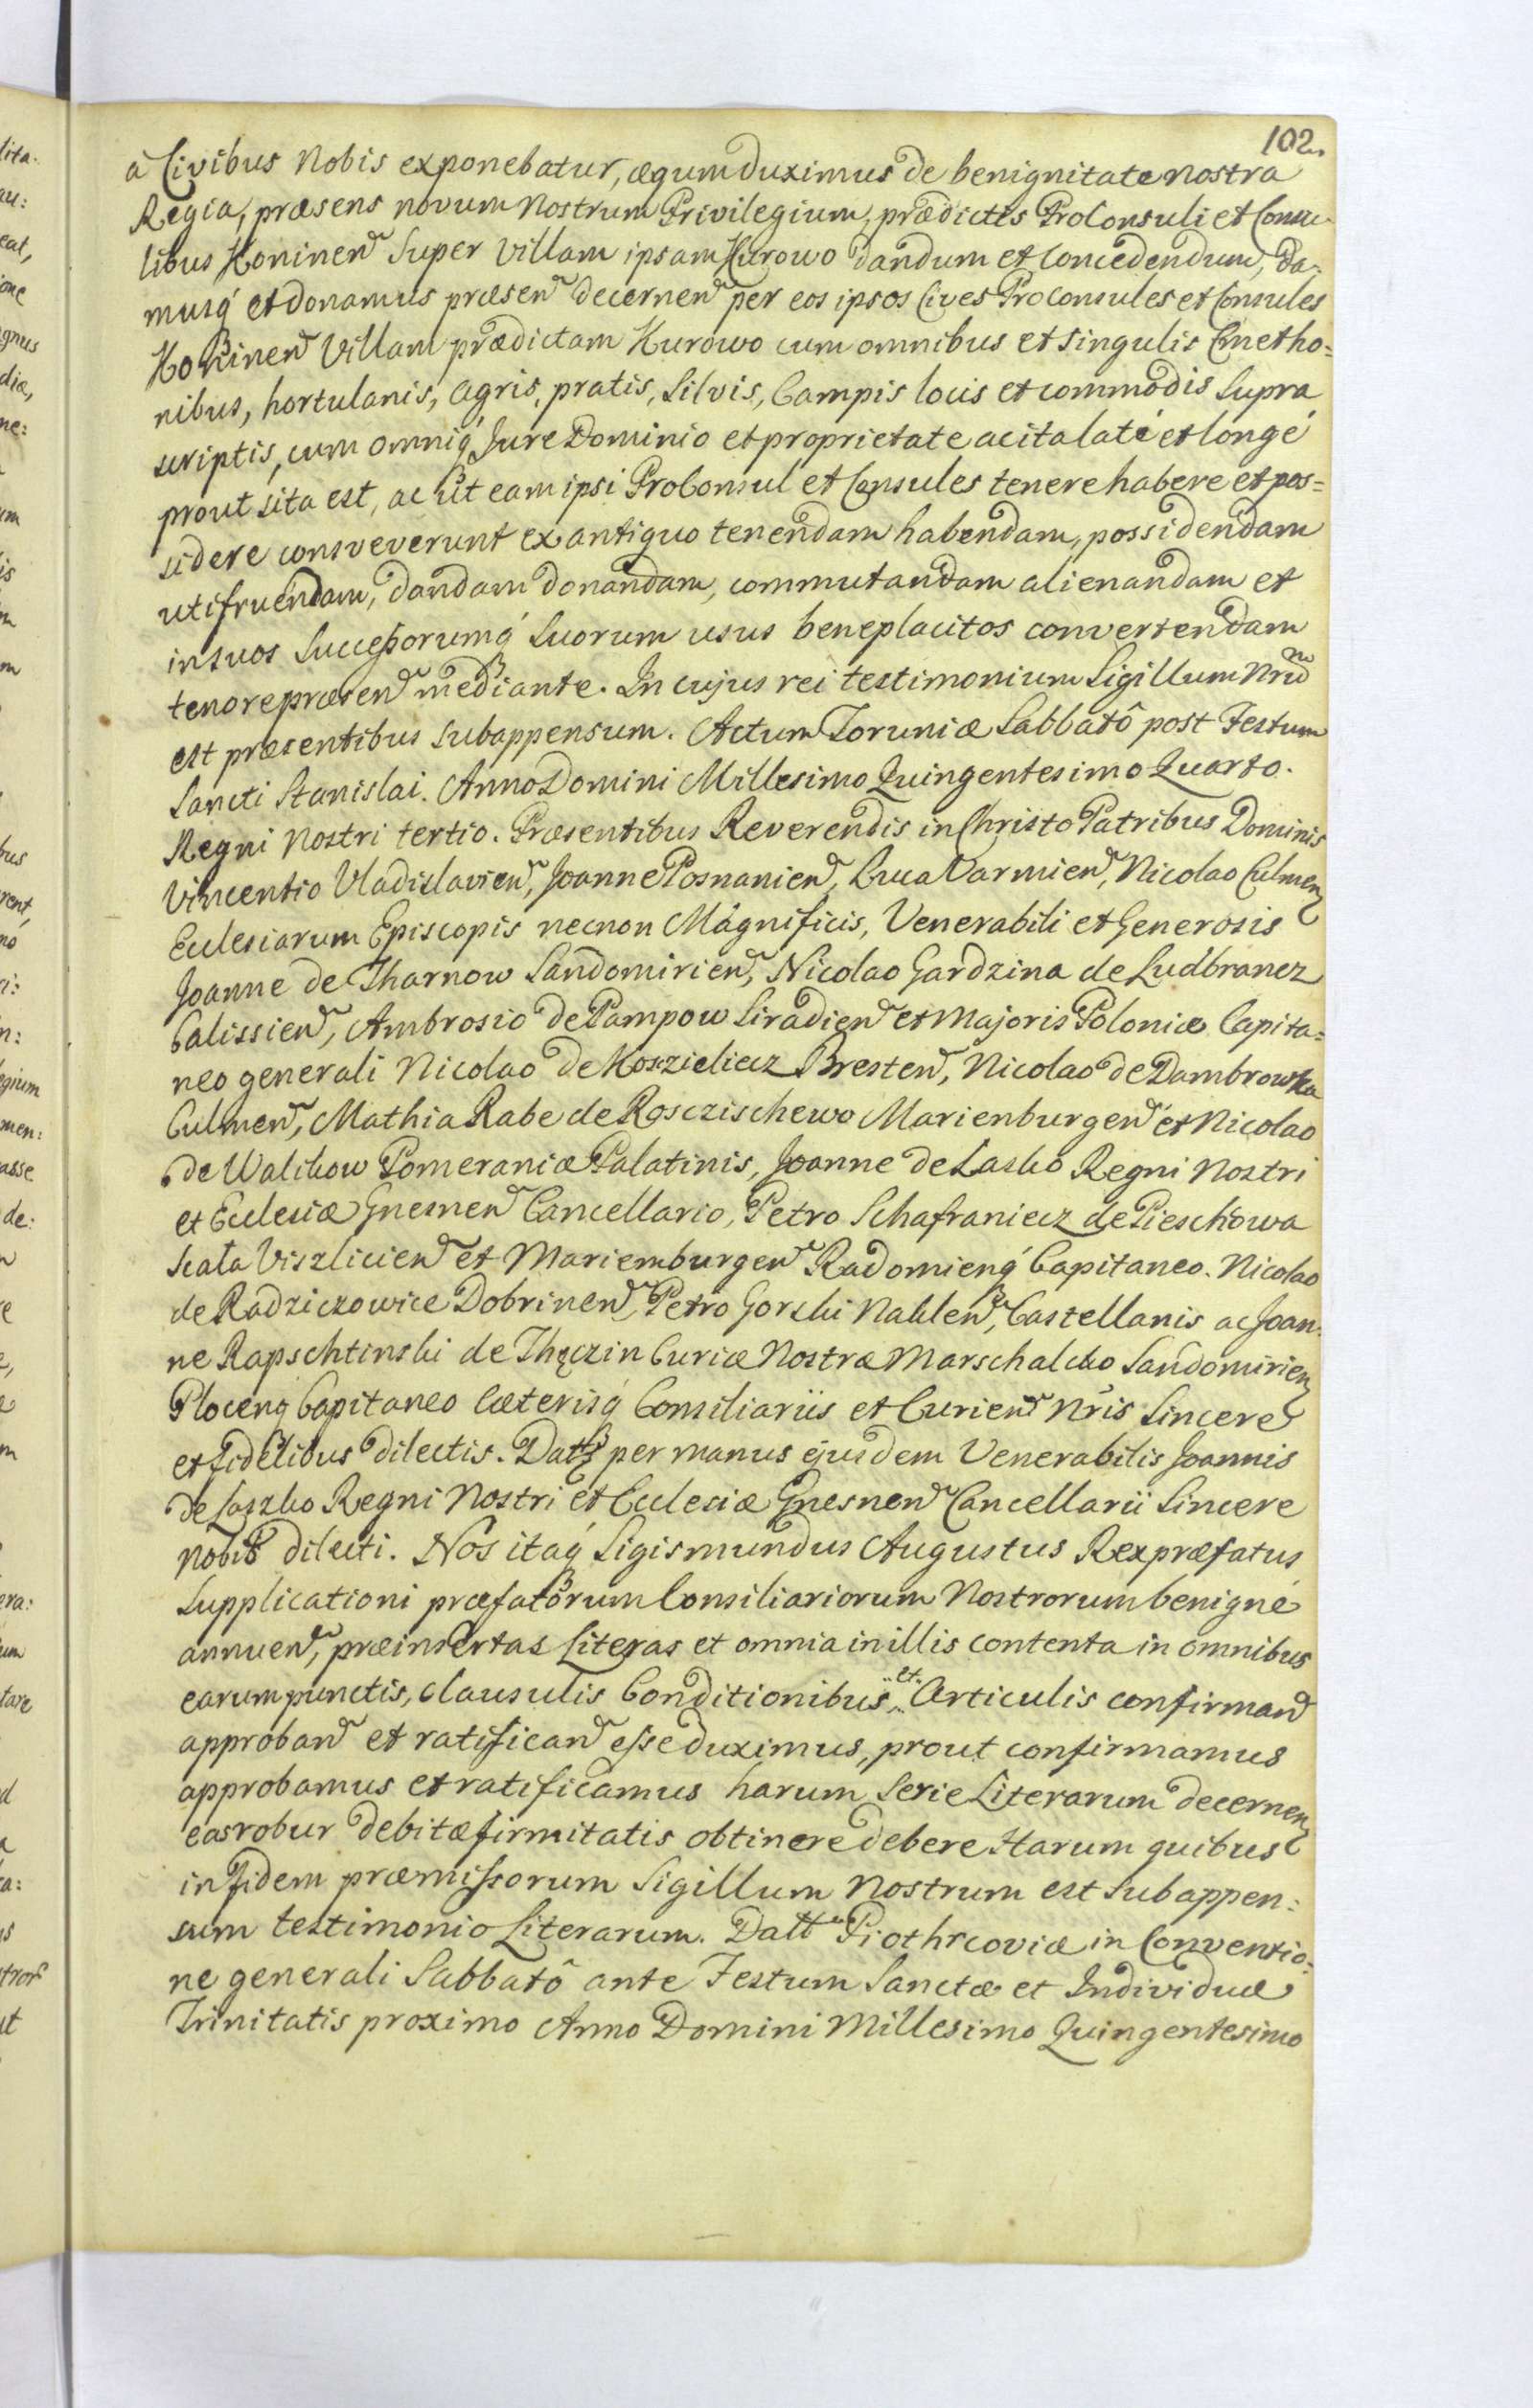 102.
à Civibus Nobis exponebatur, æquum duximus de benignitate nostra
Regia, præsens novum Nostrum Privilegium, prædictis ProConsuli et Consu-
libus Koninen Super Villam ipsam Kurowo dandum et Concedendum, da-
musq́ et donamus præsen decernen per eos ipsos Cives ProConsules et Consules
Koninen Villam prædictam Kurowo cum omnibus et singulis Cmetho=
nibus, hortulanis, agris, pratis, Silvis, Campis locis et commodis Supra
scriptis, cum omniq́ Jure Dominio et proprietate ac ita laté et longé
prout sita est, ac ut eam ipsi ProConsul et Consules tenere habere et pos=
sidere consveverunt ex antiquo tenendam habendam, possidendam
utifruendam, dandam donandam, commutandam alienandam et
in suos Successorumq́ Suorum usus beneplacitos convertendam
tenore præsen mediante. In cujus rei testimonium Sigillum Nrũ
est præsentibus Subappensum. Actum Toruniæ Sabbatô post Festum
Sancti Stanislai. Anno Domini Millesimo Quingentesimo Quarto.
Regni Nostri tertio. Præsentibus Reverendis in Christo Patribus Dominis
Vincentio Vladislavien, Joanne Posnanien, Luca Varmien, Nicolao Culmen
Ecclesiarum Episcopis necnon Magnificis, Venerabili et Generosis
Joanne de Tharnow Sandomirien, Nicolao Gardzina de Ludbrancz
Calissien, Ambrosio de Pampow Siradien et Majoris Poloniæ Capita=
neo generali Nicolao de Koszielecz Bresten, Nicolao de Dambrowka
Culmen, Mathia Rabe de Rosczischewo Marienburgen et Nicolao
de Walikow Pomeraniæ Palatinis, Joanne de Lasko Regni Nostri
et Ecclesiæ Gnesnen Cancellario, Petro Schafraniecz de Pieschowa
Scała Viszlicien et Mariemburgen Radomienq́ Capitaneo. Nicolao
de Radziczowice Dobrinen, Petro Gorski Naklen, Castellanis ac Joan-
ne Rapschtinski de Thęczin Curiæ Nostræ Marschalcko Sandomirien
Plocenq́ Capitaneo Cæterisq́ Consiliariis et Curien Nris Sincere
et fidelibus dilectis. Datt per manus ejusdem Venerabilis Joannis
de Laszko Regni Nostri et Ecclesiæ Gnesnen Cancellarii Sincere
nobis dilecti. Nos itaq́ Sigismundus Augustus Rex præfatus
Supplicationi præfatorum Consiliariorum Nostrorum benigné
annuen, præinsertas Literas et omnia in illis contenta in omnibus
earum punctis, clausulis Conditionibus et Articulis confirman
approban et ratifican esse duximus, prout confirmamus
approbamus et ratificamus harum Serie Literarum decernen
eas robur debitæ firmitatis obtinere debere Harum quibus
in fidem præmissorum Sigillum Nostrum est Subappen:
sum testimonio Literarum. Datt Piothrcoviæ in Conventio=
ne generali Sabbatô ante Festum Sanctæ et Individuæ
Trinitatis proximo Anno Domini Millesimo Quingentesimo